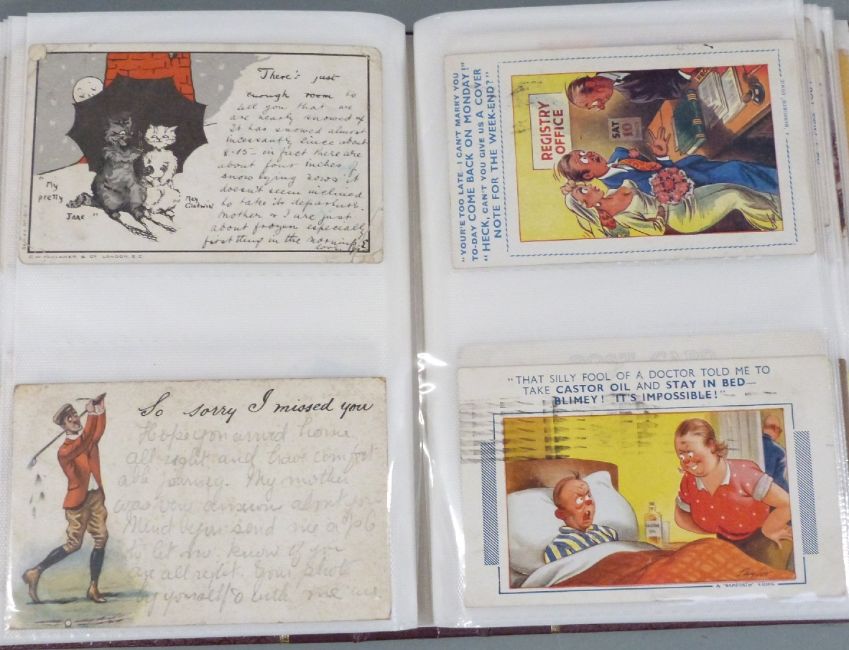 There's just
enough room to
tell you that we
are nearly snowed up
It has snowed almost
incessantly since about
8-15 - in fact there are
about four inches
snow lying now. It
doesn't seem inclined
to take its departure.
Mother & I are just
about frozen especially
first thing in the morning.
"My
pretty
Jane"
C.W. FAULKNER & CO. LONDON. E.C.
So sorry I missed you
Hope you arrived home
all right and have comfort-
able journey. My mother
was very anxious about you
Mind you send me a P.C
to let me know if you
are all right. Your photo
by yourself & with me
"YOUR'E TOO LATE. I CAN'T MARRY YOU
TO-DAY COME BACK ON MONDAY!"
"HECK, CAN'T YOU GIVE US A COVER
NOTE FOR THE WEEK-END?"
REGISTRY
OFFICE
SAT
10
A "BAMFORTH" COMIC
"THAT SILLY FOOL OF A DOCTOR TOLD ME TO
TAKE CASTOR OIL AND STAY IN BED—
BLIMEY! IT'S IMPOSSIBLE!"
CASTOR
OIL
A "BAMFORTH" COMIC